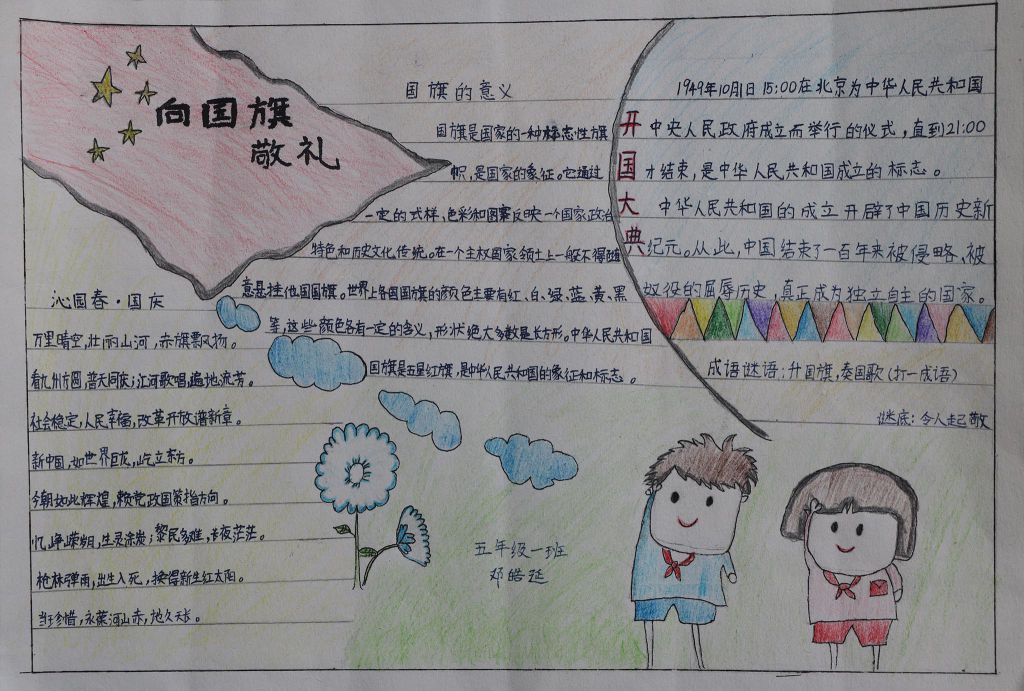 向国旗
敬礼
国旗的意义
国旗是国家的一种标志性旗
帜,是国家的象征。它通过
一定的式样,色彩和图案反映一个国家政治
特色和历史文化传统。在一个主权国家领土上一般不得随
意悬挂他国国旗。世界上各国国旗的颜色主要有红、白、绿、蓝、黄、黑
等,这些颜色各有一定的含义,形状绝大多数是长方形。中华人民共和国
国旗是五星红旗,是中华人民共和国的象征和标志。
开国大典
1949年10月1日15:00在北京为中华人民共和国
中央人民政府成立而举行的仪式,直到21:00
才结束,是中华人民共和国成立的标志。
中华人民共和国的成立开辟了中国历史新
纪元。从此,中国结束了一百年来被侵略、被
奴役的屈辱历史,真正成为独立自主的国家。
成语谜语:升国旗,奏国歌(打一成语)
谜底:令人起敬
沁园春·国庆
万里晴空,壮丽山河,赤旗飘扬。
看九州方圆,普天同庆;江河歌唱,遍地流芳。
社会稳定,人民幸福,改革开放谱新章。
新中国,如世界巨龙,屹立东方。
今朝如此辉煌,赖党政国策指方向。
忆峥嵘岁月,生灵涂炭;黎民多难,长夜茫茫。
枪林弹雨,出生入死,换得新生红太阳。
当珍惜,永葆河山赤,地久天长。
五年级一班
邓皓延